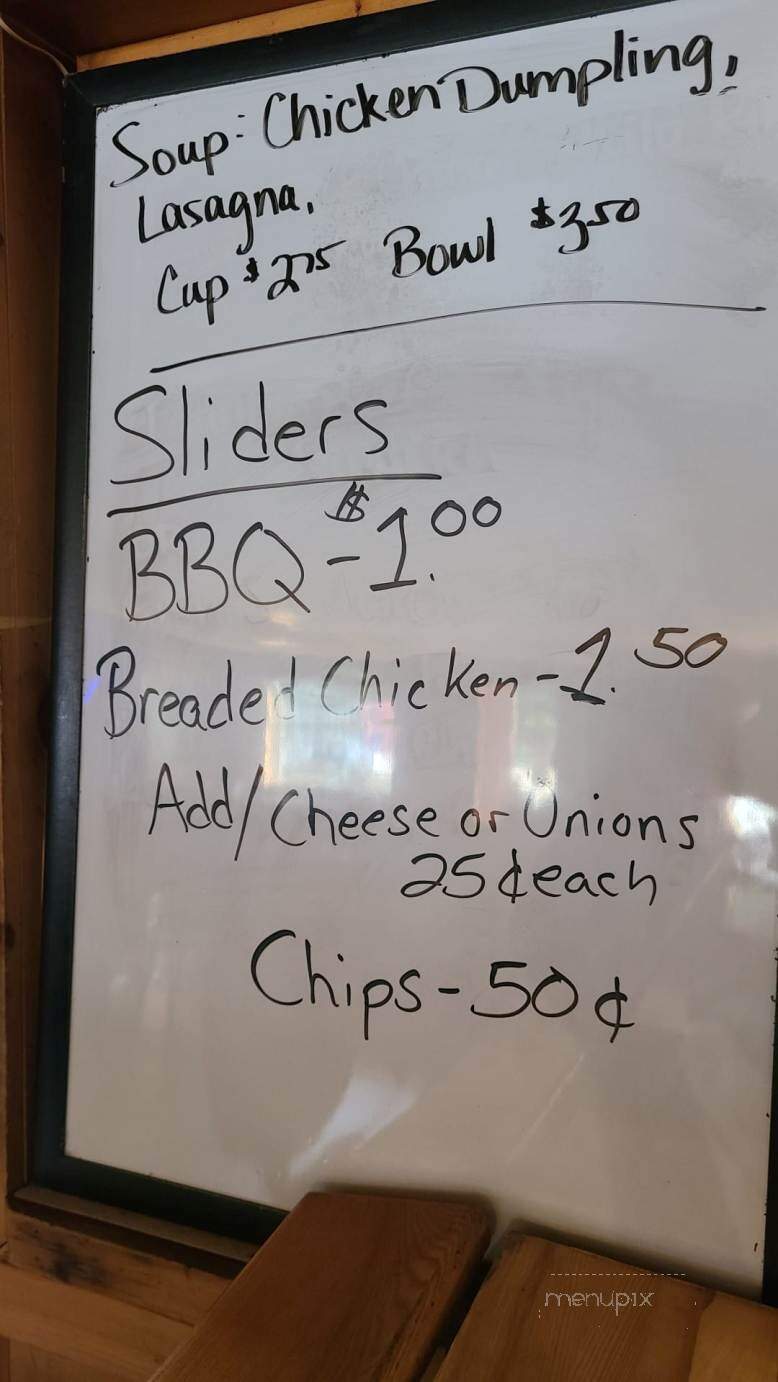 Soup: Chicken Dumpling,
Lasagna,
Cup $2.75 Bowl $3.50
Sliders
BBQ - $1.00
Breaded Chicken - 1.50
Add/Cheese or Onions
25¢ each
Chips - 50¢
menupix